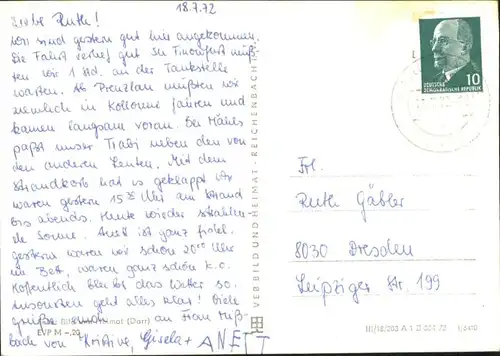 18.7.72
Liebe Ruth!
Wir sind gestern gut hier angekommen.
Die Fahrt verlief gut. In muß-
ten wir 1 Std. an der Tankstelle
warten. Ab Prenzlau mußten wir
ziemlich in Kollonne fahren und
kamen langsam voran. Bei
paßt unser Trabi neben den von
den anderen Leuten. Mit dem
Strandkorb hat es geklappt. Wir
waren gestern 15 Uhr am Strand
bis abends. Heute wieder strahlen-
de Sonne. Anett ist ganz
gestern waren wir schon 20⁰⁰ Uhr
im Bett, waren ganz schön k.o.
Hoffentlich bleibt das Wetter so.
Ansonsten geht alles klar! Viele
Grüße auch an Frau
bach von Kristine, Gisela + ANETT
(Darr)
EVP M –,20
VEB BILD UND HEIMAT · REICHENBACH I. V.
10
DEUTSCHE
DEMOKRATISCHE REPUBLIK
Frl.
Ruth Gäbler
8030 Dresden
Leipziger Str. 199
III/18/203 A 1